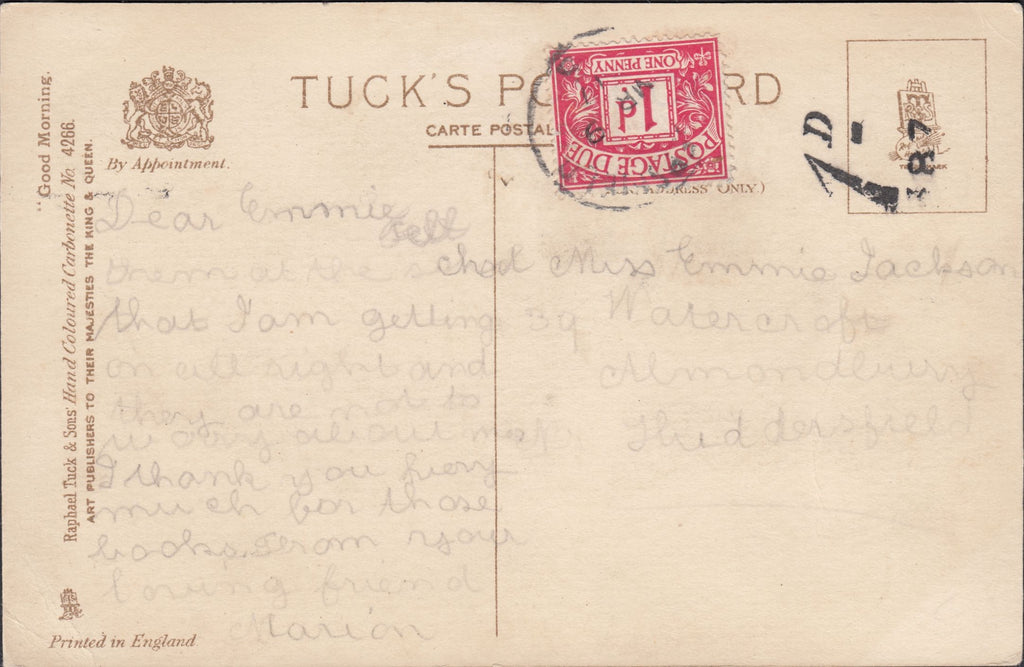 "Good Morning.
Raphael Tuck & Sons' Hand Coloured Carbonette No. 4266.
ART PUBLISHERS TO THEIR MAJESTIES THE KING & QUEEN.
By Appointment.
TUCK'S PO RD
CARTE POSTAL
ADDRESS ONLY.)
ONE PENNY
1d
POSTAGE DUE
1D
387
Dear Emmie
tell
them at the school
that I am getting
on all right and
they are not to
worry about me
I thank you very
much for those
books. From your
loving friend
Marion
Miss Emmie Jackson
39 Watercroft
Almondbury
Huddersfiel
Printed in England